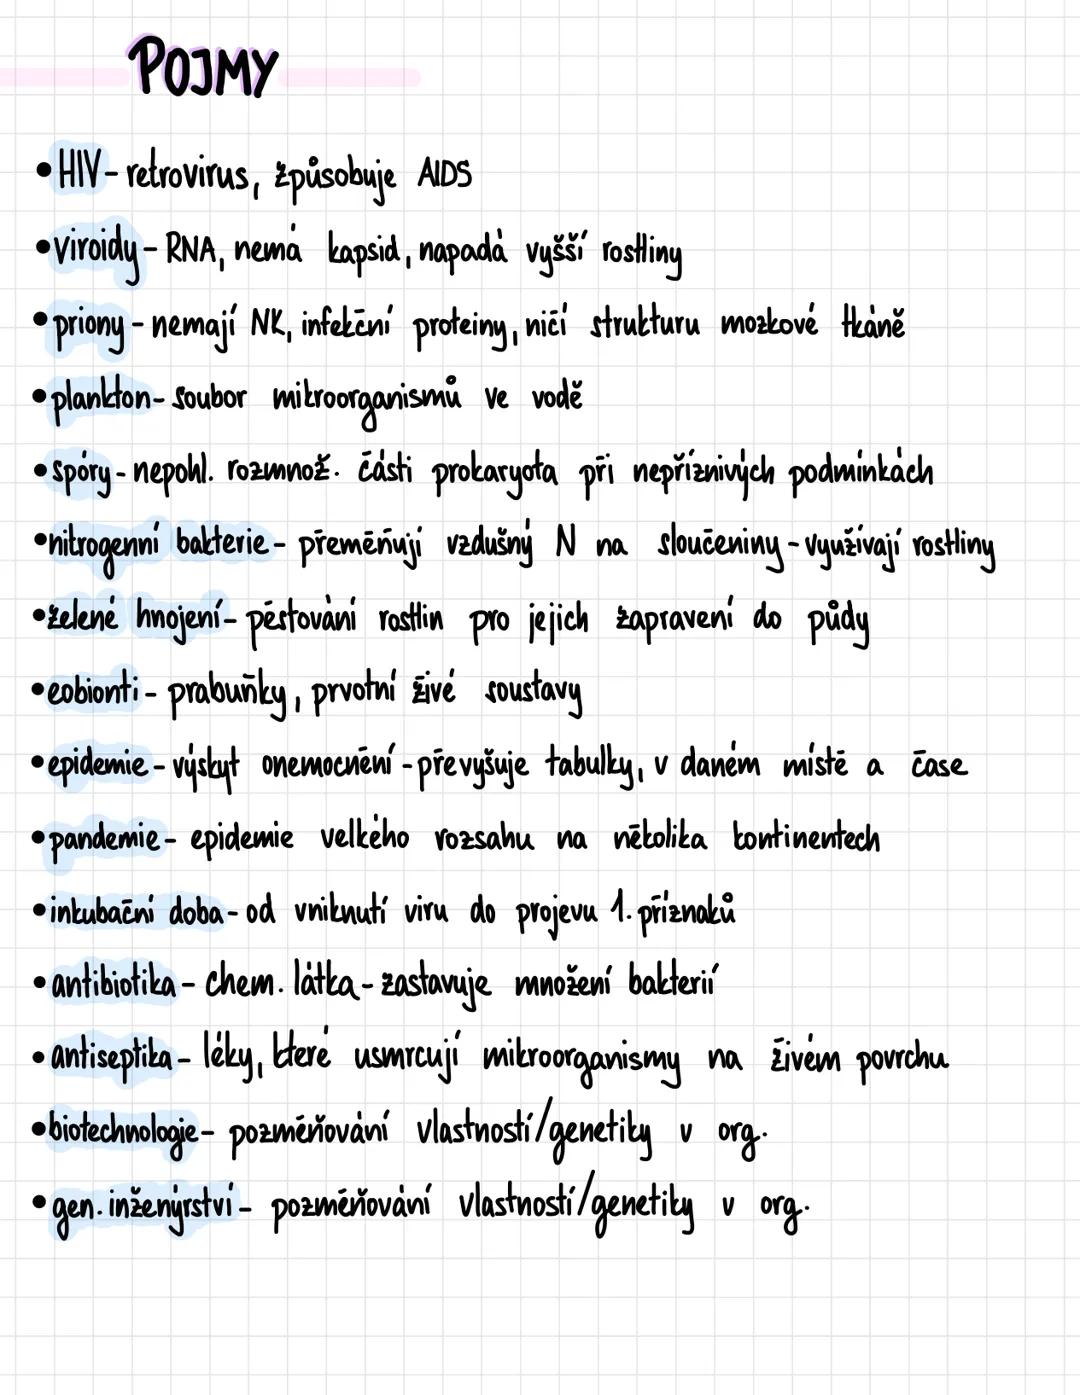 POJMY
• HIV - retrovirus, způsobuje AIDS
• viroidy - RNA, nemá kapsid, napadá vyšší rostliny
• priony - nemají NK, infekční proteiny, ničí strukturu mozkové tkáně
• plankton - soubor mikroorganismů ve vodě
• spóry - nepohl. rozmnož. části prokaryota při nepříznivých podmínkách
• nitrogenní bakterie - přeměňují vzdušný N na sloučeniny - využívají rostliny
• zelené hnojení - pěstování rostlin pro jejich zapravení do půdy
• eobionti - prabuňky, prvotní živé soustavy
• epidemie - výskyt onemocnění - převyšuje tabulky, v daném místě a čase
• pandemie - epidemie velkého rozsahu na několika kontinentech
• inkubační doba - od vniknutí viru do projevu 1. příznaků
• antibiotika - chem. látka - zastavuje množení bakterií
• antiseptika - léky, které usmrcují mikroorganismy na živém povrchu
• biotechnologie - pozměňování vlastností/genetiky v org.
• gen. inženýrství - pozměňování vlastností/genetiky v org.